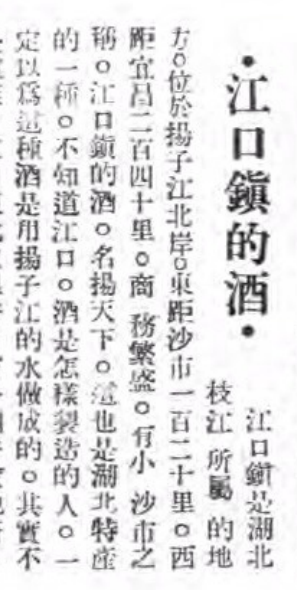 ·江口鎭的酒·
江口鎭是湖北
枝江所屬的地
方○位於揚子江北岸○東距沙市一百二十里○西
距宜昌二百四十里○商務繁盛○有小沙市之
稱○江口鎭的酒○名揚天下○這也是湖北特產
的一種○不知道江口○酒是怎樣製造的人○一
定以爲這種酒是用揚子江的水做成的○其實不